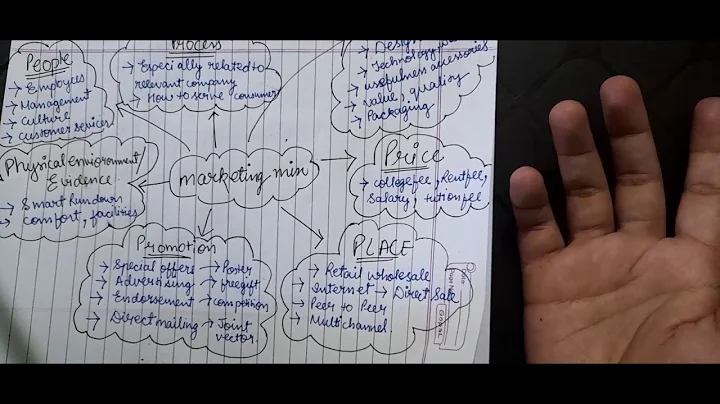 People
→ Employees
→ Management
→ Culture
→ Customer services
Process
→ Especially related to
relevant company
→ How to serve consumer
→ Design
→ Technology
→ usefulness accessories
→ value, quality
→ Packaging
Physical envioronment/
Evidence
→ Smart Rundown
→ comfort, facilities
marketing mix
Price
→ college fee, Rentfee,
Salary, tution fee
Promotion
→ Special offers → Poster
→ Advertising → freegift
→ Endorsement → competition
→ Direct mailing → Joint
vector
PLACE
→ Retail wholesale
→ Internet → Direct Sale
→ Peer to Peer
→ Multichannel